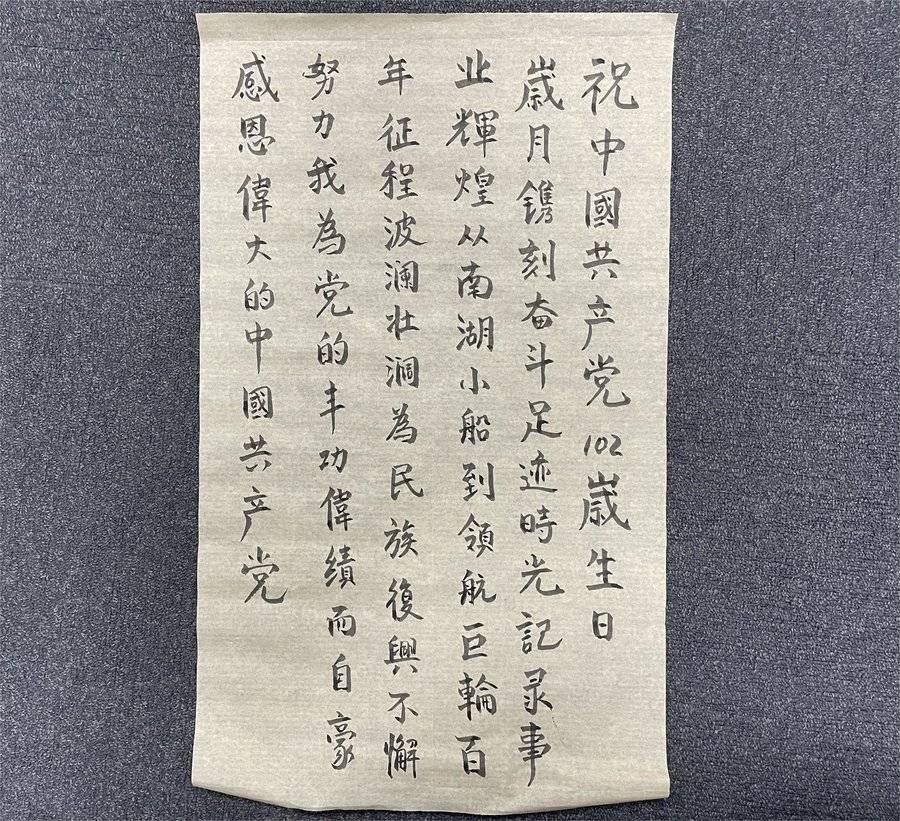 祝中國共产党102歲生日
歲月镌刻奋斗足迹時光記录事
业輝煌从南湖小船到領航巨輪百
年征程波澜壮涧為民族復興不懈
努力我為党的丰功偉績而自豪
感恩偉大的中國共产党